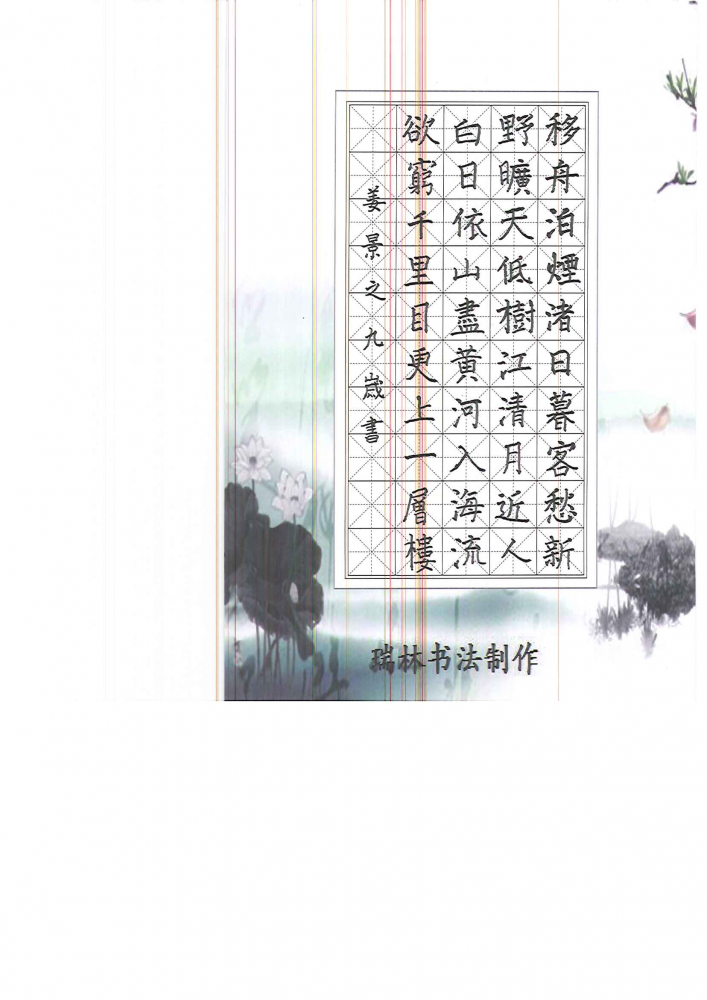 移舟泊煙渚日暮客愁新
野曠天低樹江清月近人
白日依山盡黃河入海流
欲窮千里目更上一層樓
姜景之九歲書
瑞林书法制作